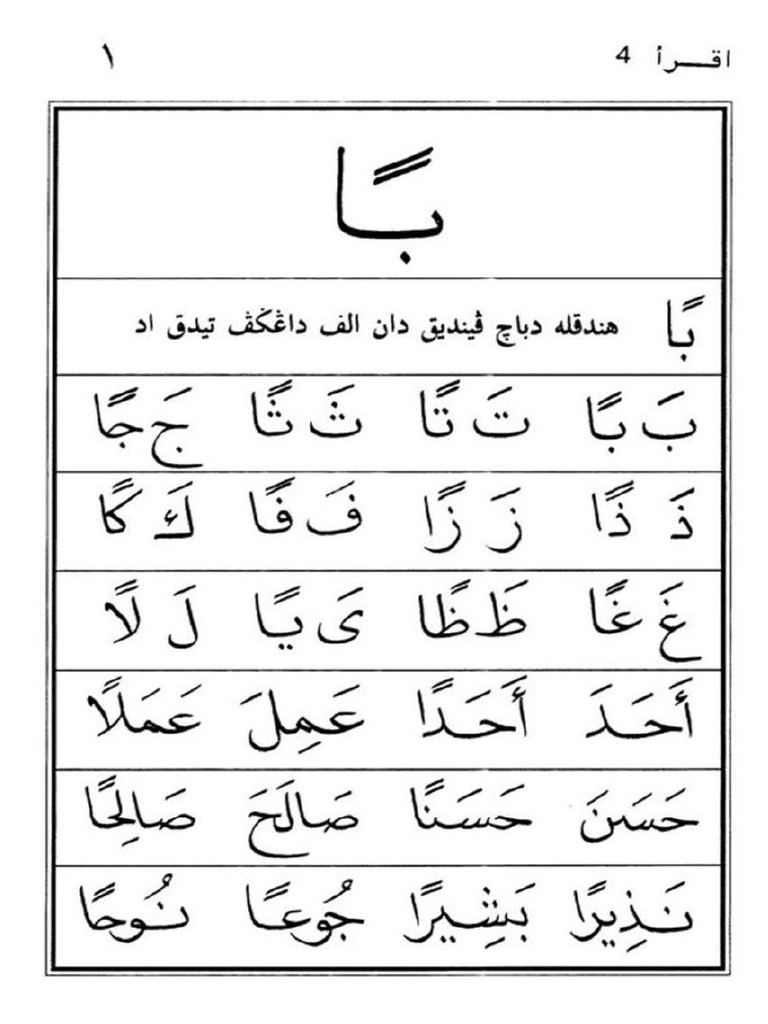 اقـــرأ 4 ١
بًا
بًا هندقله دباچ ڤينديق دان الف داڠݢڤ تيدق اد
بَ بًا تَ تًا ثَ ثًا جَ جًا
ذَ ذًا زَ زًا فَ فًا كَ كًا
غَ غًا ظَ ظًا ىَ يًا لَ لًا
أَحَدَ أَحَدًا عَمِلَ عَمَلًا
حَسَنَ حَسَنًا صَالَحَ صَالِحًا
نَذِيرًا بَشِيرًا جُوعًا نُوحًا